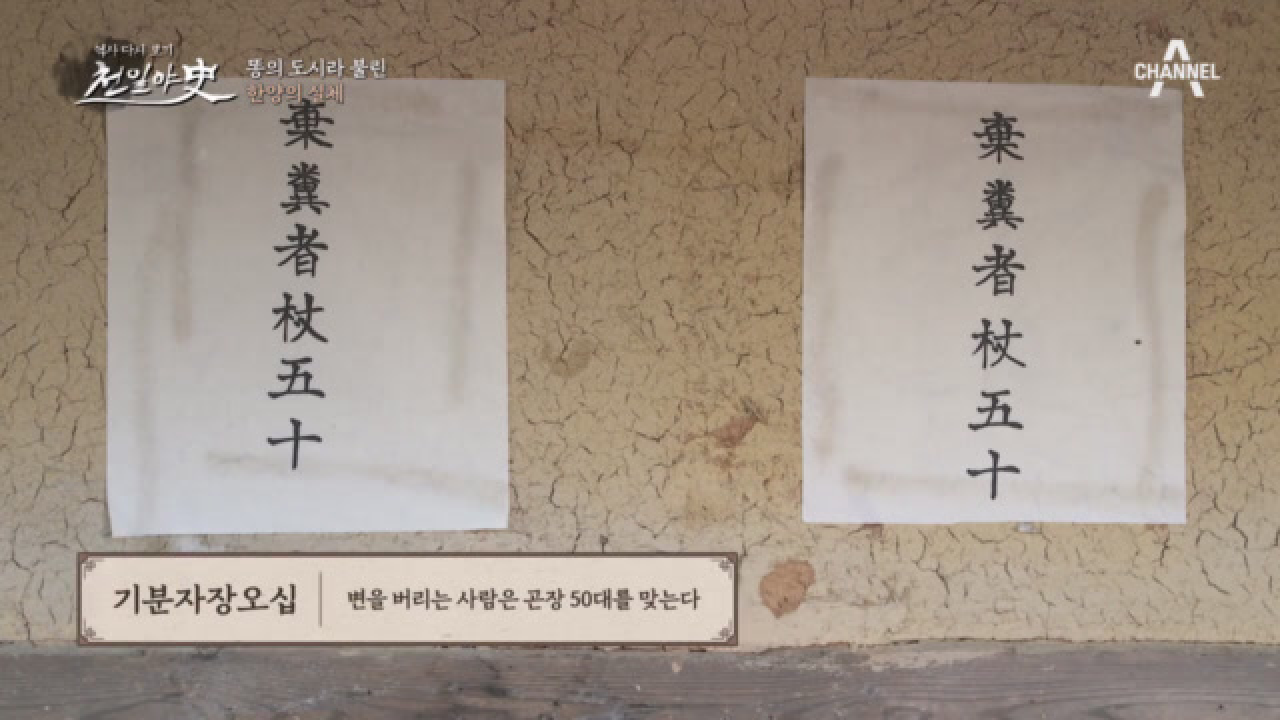 역사 다시 보기
천일야史
똥의 도시라 불린
한양의 실체
CHANNEL A
棄糞者杖五十
棄糞者杖五十
기분자장오십
변을 버리는 사람은 곤장 50대를 맞는다